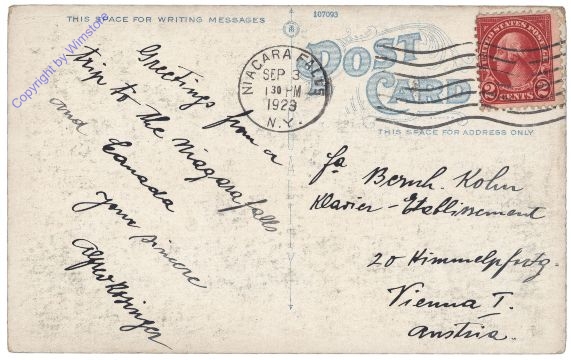 THIS SPACE FOR WRITING MESSAGES
107093
Copyright by Wimstore
Greetings from a
trip to the Niagarafalls
and Canada
your sincere
Alfred
NIAGARA FALLS
SEP 3
1 30 PM
1929
N.Y.
POST
CARD
UNITED STATES POSTAGE
2 CENTS 2
THIS SPACE FOR ADDRESS ONLY
fa
Bernh. Kohn
Klavier-Etablissement
20 Himmelpfortg.
Vienna I.
Austria.